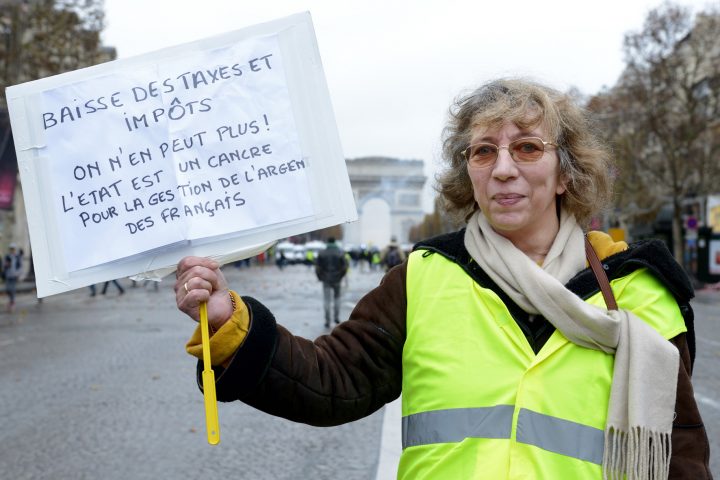 BAISSE DES TAXES ET
IMPÔTS
ON N'EN PEUT PLUS!
L'ETAT EST UN CANCRE
POUR LA GESTION DE L'ARGEN
DES FRANÇAIS